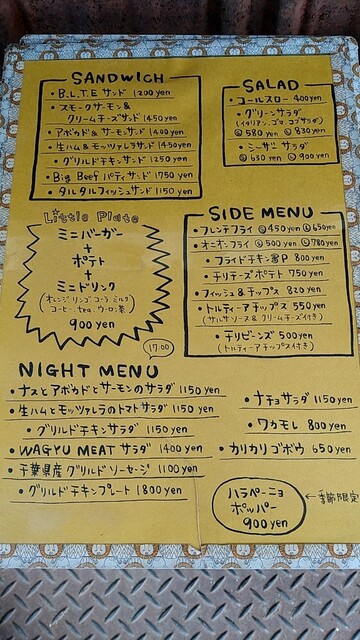 SANDWICH
・B.L.T.E サンド 1200 yen
・スモークサーモン&
クリームチーズサンド 1450 yen
・アボカド&サーモンサンド 1400 yen
・生ハム&モッツァレラサンド 1450yen
・グリルドチキンサンド 1250 yen
・Big Beef パティサンド 1750 yen
・タルタルフィッシュサンド 1150 yen
SALAD
・コールスロー 400 yen
・グリーンサラダ
(イタリアン、ゴマ、コブサラダ)
Ⓢ 580 yen Ⓛ 830yen
・シーザーサラダ
Ⓢ 630 yen Ⓛ 900yen
Little Plate
ミニバーガー
+
ポテト
+
ミニドリンク
(オレンジ リンゴ コーラ ミルク
コーヒー tea ウーロン茶)
900 yen
SIDE MENU
・フレンチフライ Ⓢ 450 yen Ⓛ 650yen
・オニオンフライ Ⓢ 500 yen Ⓛ 780yen
・フライドチキン 800 yen
・チリチーズポテト 750 yen
・フィッシュ&チップス 820 yen
・トルティーアチップス 550 yen
(サルサソース&クリームチーズ付き)
・チリビーンズ 500 yen
(トルティーアチップス付き)
17:00
NIGHT MENU
・ナスとアボカドとサーモンのサラダ 1150 yen
・生ハムとモッツァレラのトマトサラダ 1150 yen
・グリルドチキンサラダ 1150 yen
・WAGYU MEAT サラダ 1400 yen
・千葉県産 グリルドソーセージ 1100 yen
・グリルドチキンプレート 1800 yen
・ナチョサラダ 1150 yen
・ワカモレ 800 yen
・カリカリゴボウ 650 yen
ハラペーニョ
ポッパー
900 yen
←季節限定